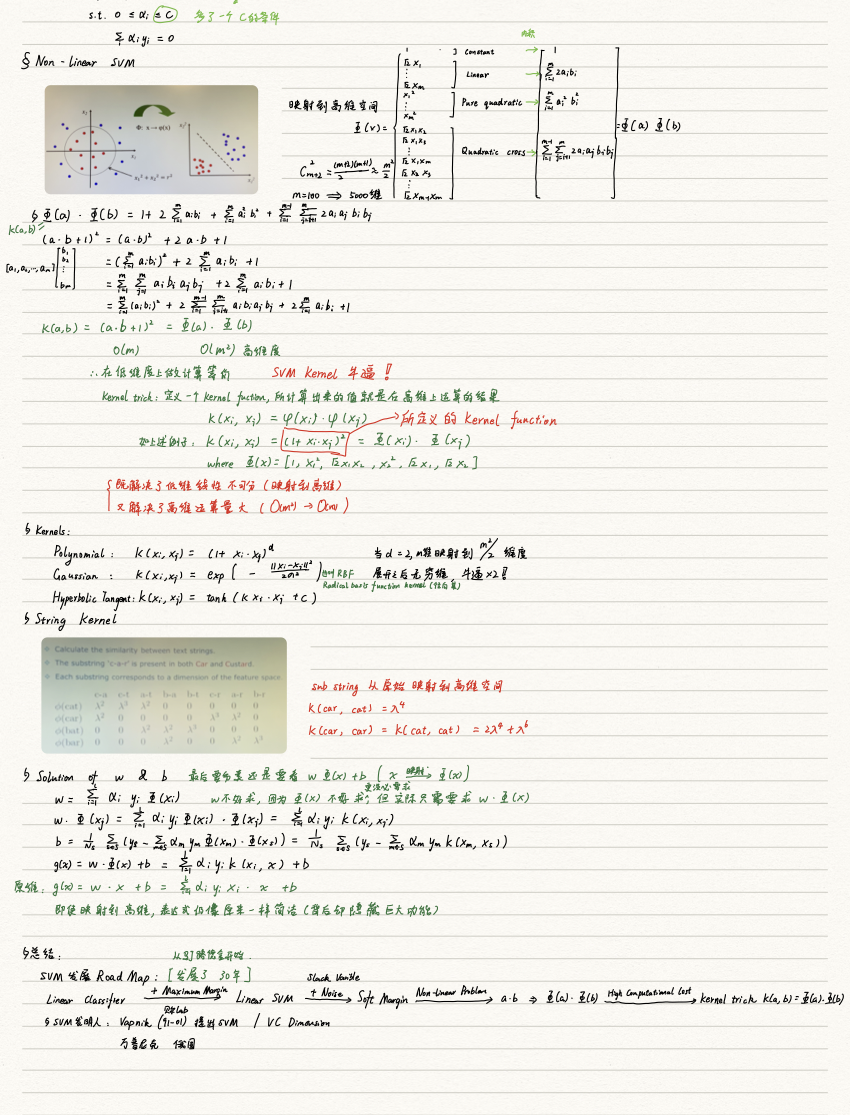 s.t. 0 ≤ αi ≤ C 多了一个 C 的条件
Σ αi yi = 0
§ Non-Linear SVM
内积
映射到高维空间
Φ(x) =
1
√2 x1
⋮
√2 xm
x1²
⋮
xm²
√2 x1x2
√2 x1x3
⋮
√2 x1xm
√2 x2x3
⋮
√2 xm-1xm
Constant → 1
Linear → Σ_{i=1}^{m} 2aibi
Pure quadratic → Σ_{i=1}^{m} ai² bi²
Quadratic cross → Σ_{i=1}^{m-1} Σ_{j=i+1}^{m} 2aiaj bibj
= Φ(a) Φ(b)
C²_{m+2} = (m+2)(m+1)/2 ≈ m²/2
m=100 ⇒ 5000维
Φ: x→φ(x)
x1² + x2² = r²
§ Φ(a) · Φ(b) = 1 + 2 Σ_{i=1}^{m} aibi + Σ_{i=1}^{m} ai² bi² + Σ_{i=1}^{m-1} Σ_{j=i+1}^{m} 2ai aj bi bj
K(a,b) =
(a·b+1)² = (a·b)² + 2a·b + 1
[a1, a2, ..., am] [b1 b2 ⋮ bm]
= (Σ_{i=1}^{m} aibi)² + 2 Σ_{i=1}^{m} aibi + 1
= Σ_{i=1}^{m} Σ_{j=1}^{m} ai bi aj bj + 2 Σ_{i=1}^{m} aibi + 1
= Σ_{i=1}^{m} (aibi)² + 2 Σ_{i=1}^{m-1} Σ_{j=i+1}^{m} aibiaj bj + 2 Σ_{i=1}^{m} aibi + 1
K(a,b) = (a·b+1)² = Φ(a) · Φ(b)
O(m) O(m²) 高维度
∴ 在低维度上做计算等价 SVM Kernel 牛逼!
Kernel trick: 定义一个 kernel fuction, 所计算出来的值就是在高维上运算的结果
K(xi, xj) = φ(xi)·φ(xj) 所定义的 Kernel function
如上述例子: K(xi, xj) = (1+ xi·xj)² = Φ(xi) · Φ(xj)
where Φ(x) = [1, x1², √2 x1x2, x2², √2 x1, √2 x2]
既解决了低维线性不可分 (映射到高维)
又解决了高维运算量大 (O(m²) → O(m))
§ Kernels:
Polynomial: K(xi, xj) = (1+ xi·xj)^d 当 d=2, m维映射到 m²/2 维度
Gaussian: K(xi, xj) = exp ( - ||xi-xj||² / 2σ² ) 也叫 RBF 展开之后无穷维 牛逼×2!
Radical basis function kernel (径向基)
Hyperbolic Tangent: K(xi, xj) = tanh (k xi·xj + c)
§ String Kernel
Calculate the similarity between text strings.
The substring 'c-a-r' is present in both Car and Custard.
Each substring corresponds to a dimension of the feature space.
c-a c-t a-t b-a b-t c-r a-r b-r
φ(cat) λ² λ³ λ² 0 0 0 0 0
φ(car) λ² 0 0 0 0 λ³ λ² 0
φ(bat) 0 0 λ² λ² λ³ 0 0 0
φ(bar) 0 0 0 λ² 0 0 λ² λ³
sub string 从原始映射到高维空间
K(car, cat) = λ⁴
K(car, car) = K(cat, cat) = 2λ⁴+λ⁶
§ Solution of w & b 最后需要还是要看 w Φ(x)+b ( x 映射→ Φ(x) )
w = Σ_{i=1}^{l} αi yi Φ(xi) w不好求, 因为 Φ(x) 不好求, 但实际只需要求 w·Φ(x)
w·Φ(xj) = Σ_{i=1}^{l} αi yi Φ(xi)·Φ(xj) = Σ_{i=1}^{l} αi yi K(xi, xj)
b = 1/Ns Σ_{s∈S} (ys - Σ_{m∈S} αm ym Φ(xm)·Φ(xs)) = 1/Ns Σ_{s∈S} (ys - Σ_{m∈S} αm ym K(xm, xs))
g(x) = w·Φ(x) + b = Σ_{i=1}^{l} αi yi K(xi, x) + b
原维: g(x) = w·x + b = Σ_{i=1}^{l} αi yi xi·x + b
即使映射到高维, 表达式仍像原来一样简洁 (背后却隐藏巨大功能)
§ 总结:
SVM 发展 Road Map: [发展了 30年]
Linear Classifier + Maximum Margin → Linear SVM Slack Varible + Noise → Soft Margin Non-linear Problem → a·b ⇒ Φ(a)·Φ(b) High Computational Cost → Kernel trick K(a,b) = Φ(a)·Φ(b)
§ SVM发明人: Vapnik (91-01) 提出SVM / VC Dimension
万普尼克 俄国